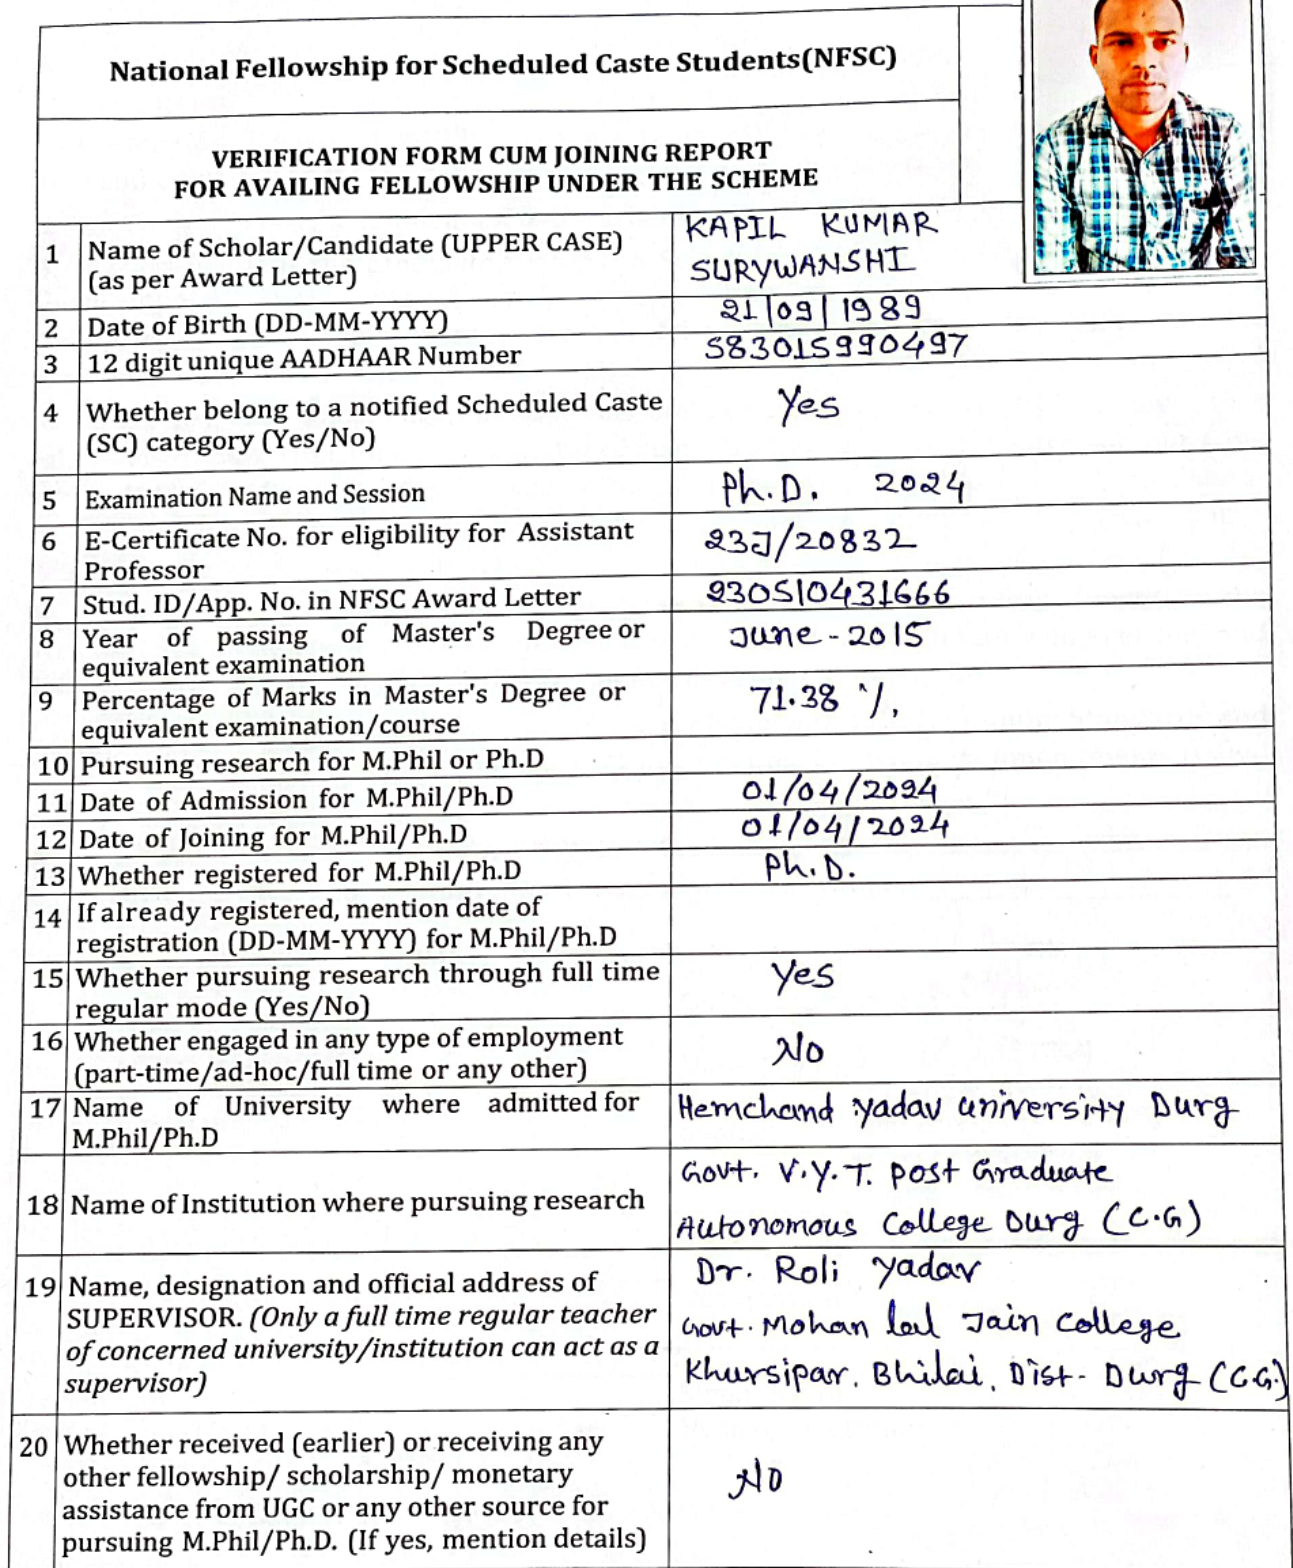 National Fellowship for Scheduled Caste Students(NFSC)
VERIFICATION FORM CUM JOINING REPORT
FOR AVAILING FELLOWSHIP UNDER THE SCHEME
1 Name of Scholar/Candidate (UPPER CASE) KAPIL KUMAR
(as per Award Letter) SURYWANSHI
2 Date of Birth (DD-MM-YYYY) 21/09/1989
3 12 digit unique AADHAAR Number 583015990497
4 Whether belong to a notified Scheduled Caste Yes
(SC) category (Yes/No)
5 Examination Name and Session Ph.D. 2024
6 E-Certificate No. for eligibility for Assistant 23J/20832
Professor
7 Stud. ID/App. No. in NFSC Award Letter 230510431666
8 Year of passing of Master's Degree or June-2015
equivalent examination
9 Percentage of Marks in Master's Degree or 71.38 %.
equivalent examination/course
10 Pursuing research for M.Phil or Ph.D
11 Date of Admission for M.Phil/Ph.D 01/04/2024
12 Date of Joining for M.Phil/Ph.D 01/04/2024
13 Whether registered for M.Phil/Ph.D Ph.D.
14 If already registered, mention date of
registration (DD-MM-YYYY) for M.Phil/Ph.D
15 Whether pursuing research through full time Yes
regular mode (Yes/No)
16 Whether engaged in any type of employment No
(part-time/ad-hoc/full time or any other)
17 Name of University where admitted for Hemchand yadav university Durg
M.Phil/Ph.D
18 Name of Institution where pursuing research Govt. V.Y.T. post Graduate
Autonomous College Durg (C.G)
19 Name, designation and official address of Dr. Roli yadav
SUPERVISOR. (Only a full time regular teacher Govt. Mohan lal Jain College
of concerned university/institution can act as a Khursipar, Bhilai, Dist- Durg (C.G.)
supervisor)
20 Whether received (earlier) or receiving any
other fellowship/ scholarship/ monetary No
assistance from UGC or any other source for
pursuing M.Phil/Ph.D. (If yes, mention details)